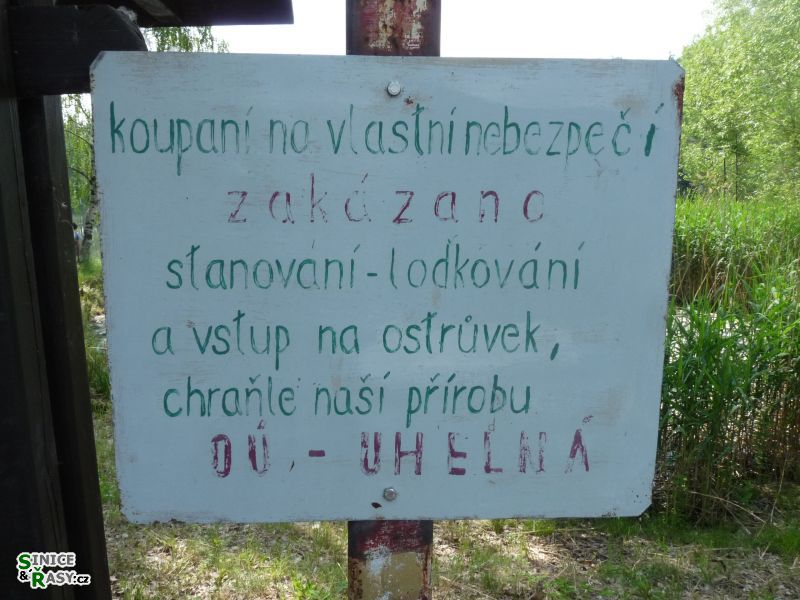 koupaní na vlastní nebezpečí
zakázano
stanování - lodkování
a vstup na ostrůvek,
chraňte naší přírobu
OÚ - UHELNÁ
SINICE
& ŘASY.cz